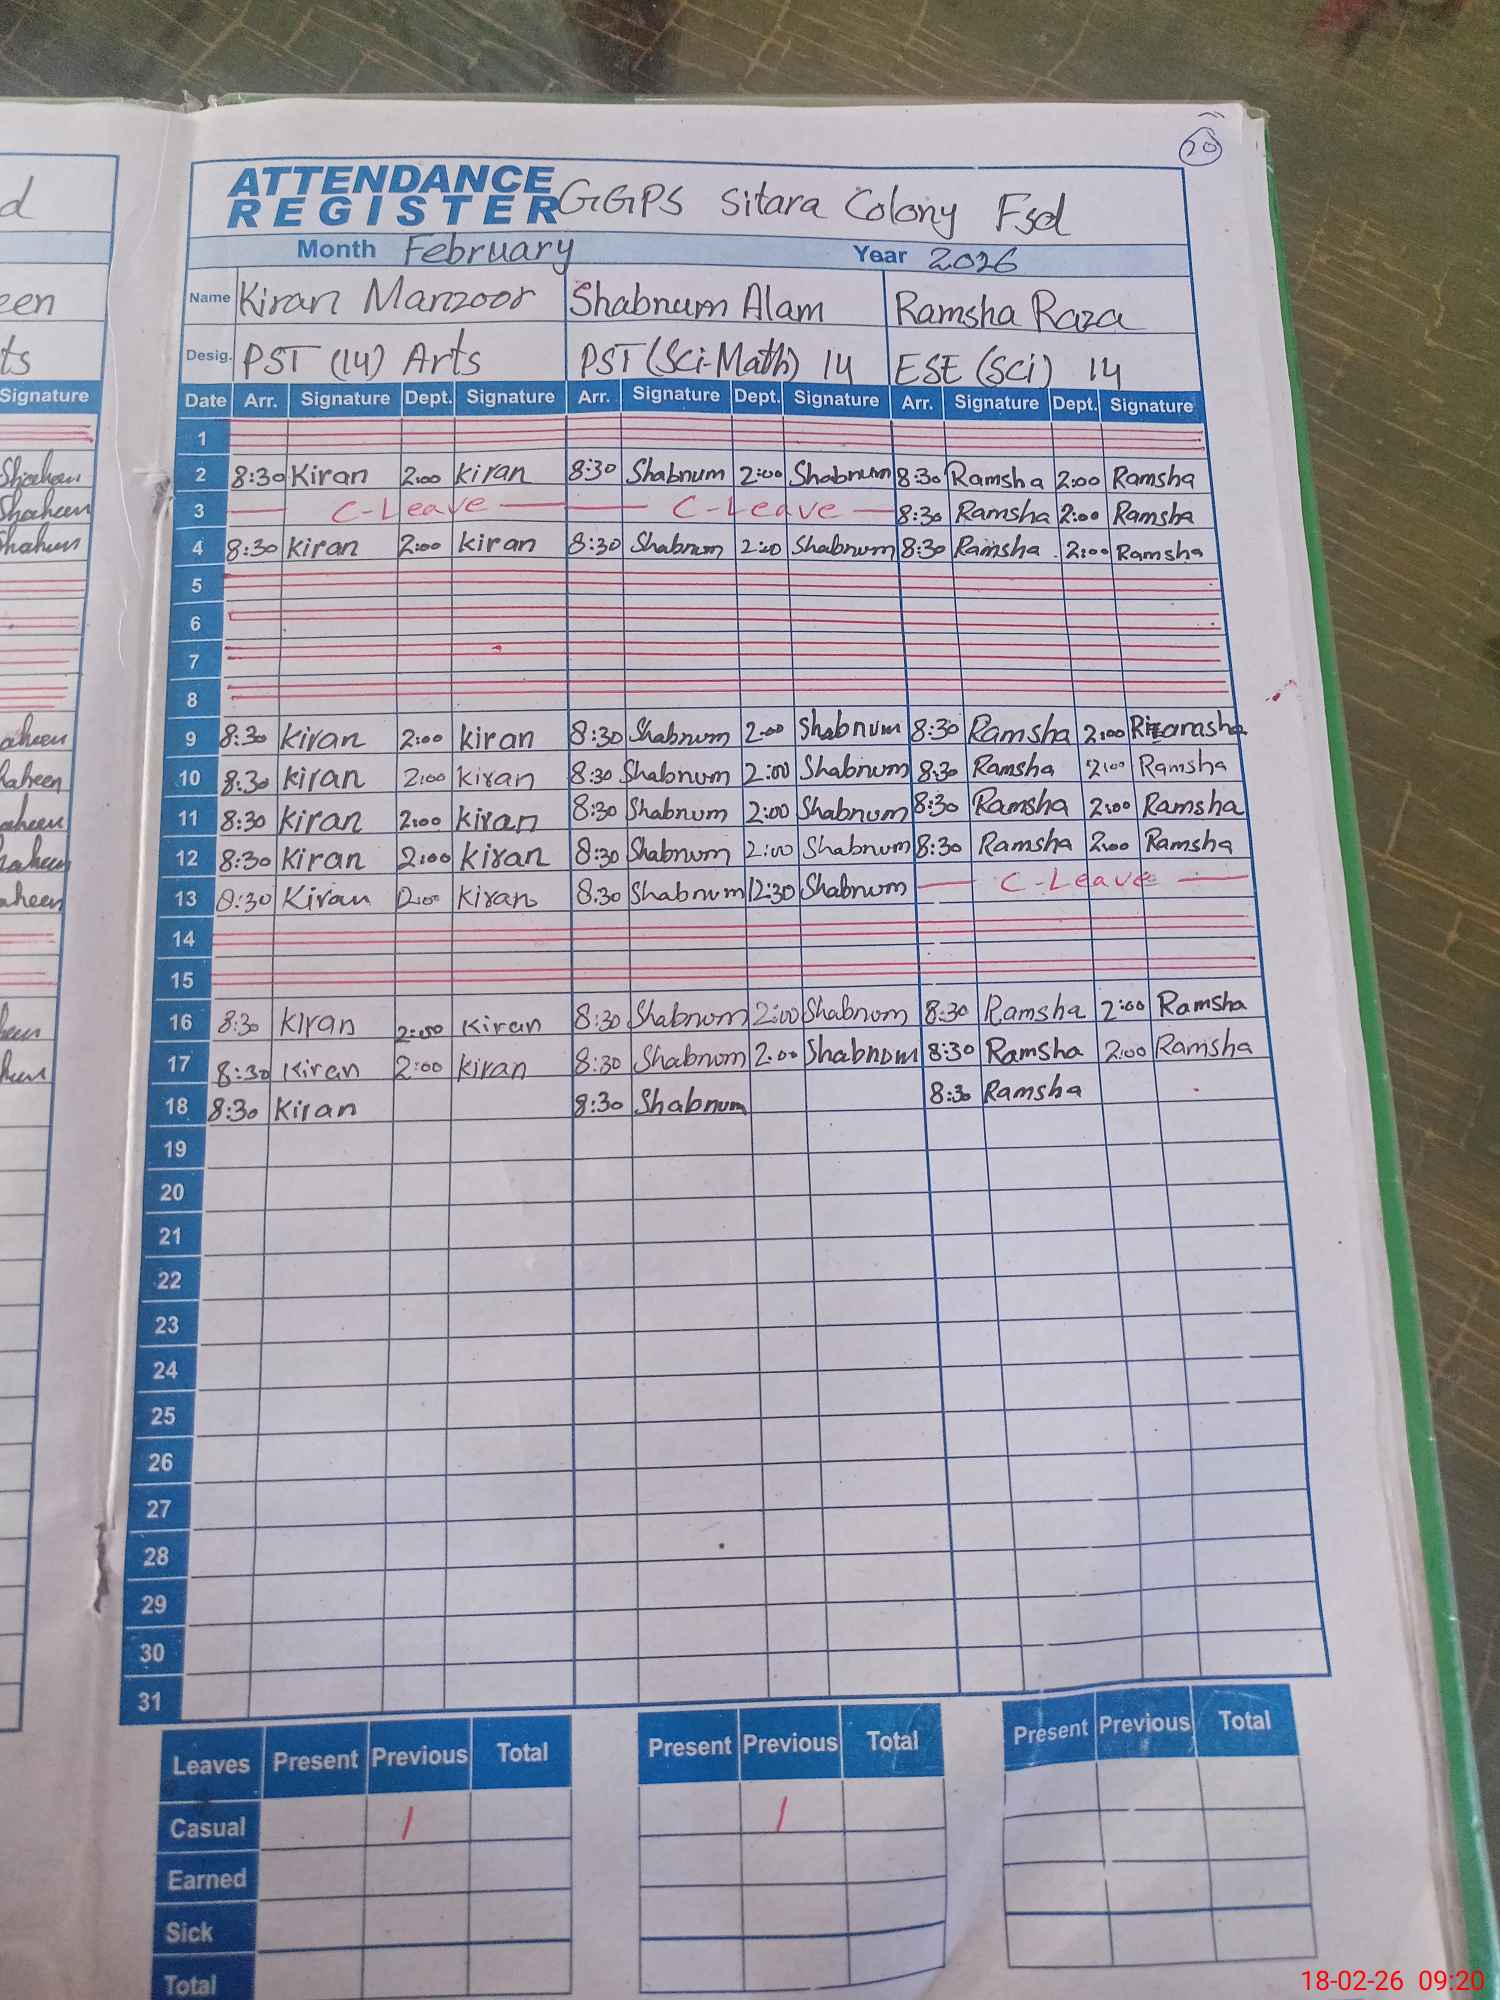 20
d
een
ts
Signature
Shaheen
Shaheen
Shaheen
aheen
haheen
aheen
haheen
aheen
heen
heen
ATTENDANCE REGISTER GGPS Sitara Colony Fsd
Month February Year 2026
Name Kiran Manzoor Shabnum Alam Ramsha Raza
Desig. PST (14) Arts PST (Sci-Math) 14 ESE (Sci) 14
Date Arr. Signature Dept. Signature Arr. Signature Dept. Signature Arr. Signature Dept. Signature
1
2 8:30 Kiran 2:00 Kiran 8:30 Shabnum 2:00 Shabnum 8:30 Ramsha 2:00 Ramsha
3 C-Leave C-Leave 8:30 Ramsha 2:00 Ramsha
4 8:30 Kiran 2:00 Kiran 8:30 Shabnum 2:00 Shabnum 8:30 Ramsha 2:00 Ramsha
5
6
7
8
9 8:30 Kiran 2:00 Kiran 8:30 Shabnum 2:00 Shabnum 8:30 Ramsha 2:00
10 8:30 Kiran 2:00 Kiran 8:30 Shabnum 2:00 Shabnum 8:30 Ramsha 2:00 Ramsha
11 8:30 Kiran 2:00 Kiran 8:30 Shabnum 2:00 Shabnum 8:30 Ramsha 2:00 Ramsha
12 8:30 Kiran 2:00 Kiran 8:30 Shabnum 2:00 Shabnum 8:30 Ramsha 2:00 Ramsha
13 8:30 Kiran Kiran 8:30 Shabnum 12:30 Shabnum C-Leave
14
15
16 8:30 Kiran 2:00 Kiran 8:30 Shabnum 2:00 Shabnum 8:30 Ramsha 2:00 Ramsha
17 8:30 Kiran 2:00 Kiran 8:30 Shabnum 2:00 Shabnum 8:30 Ramsha 2:00 Ramsha
18 8:30 Kiran 8:30 Shabnum 8:30 Ramsha
19
20
21
22
23
24
25
26
27
28
29
30
31
Leaves Present Previous Total Present Previous Total Present Previous Total
Casual 1 1
Earned
Sick
Total
18-02-26 09:20